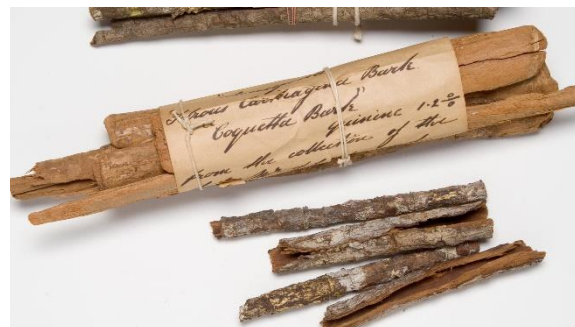 Fibrous Carthagena Bark
"Coquetta Bark"
Quinine 1·2 %
from the collection of the